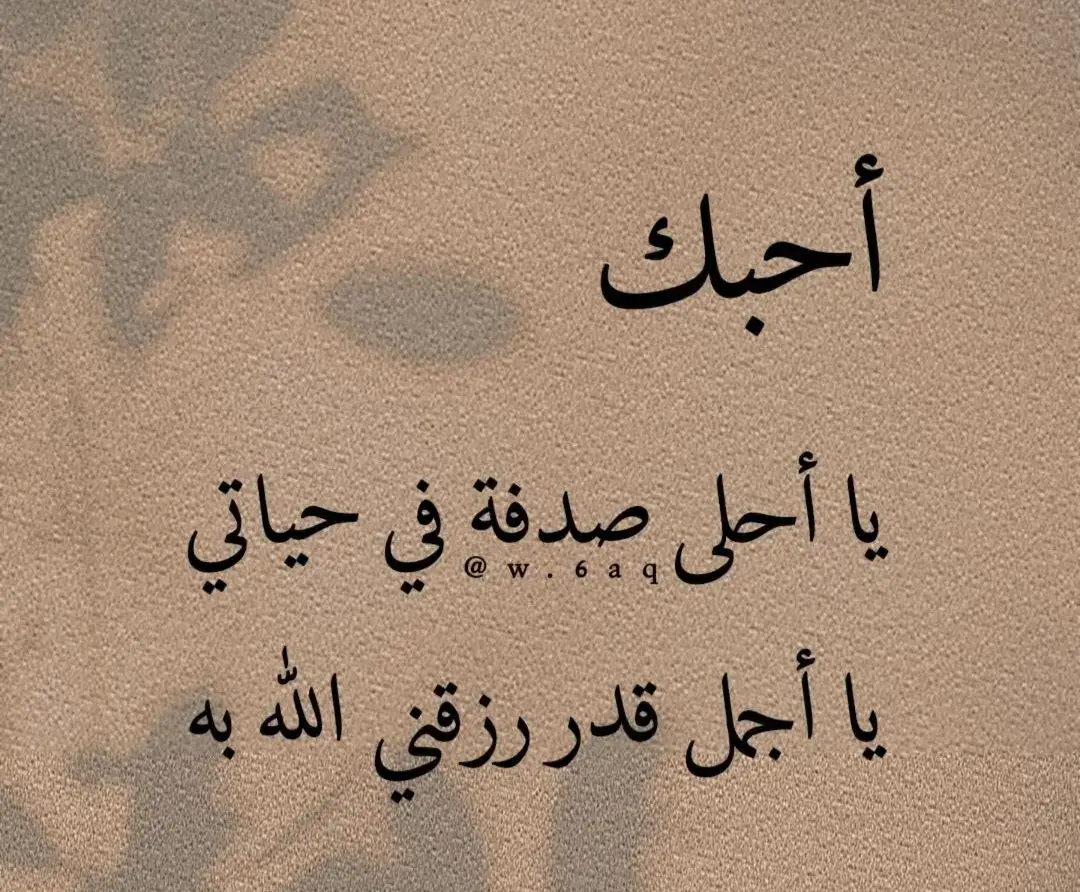 أحبك
يا أحلى صدفة في حياتي
@w.6aq
يا أجمل قدر رزقني الله به